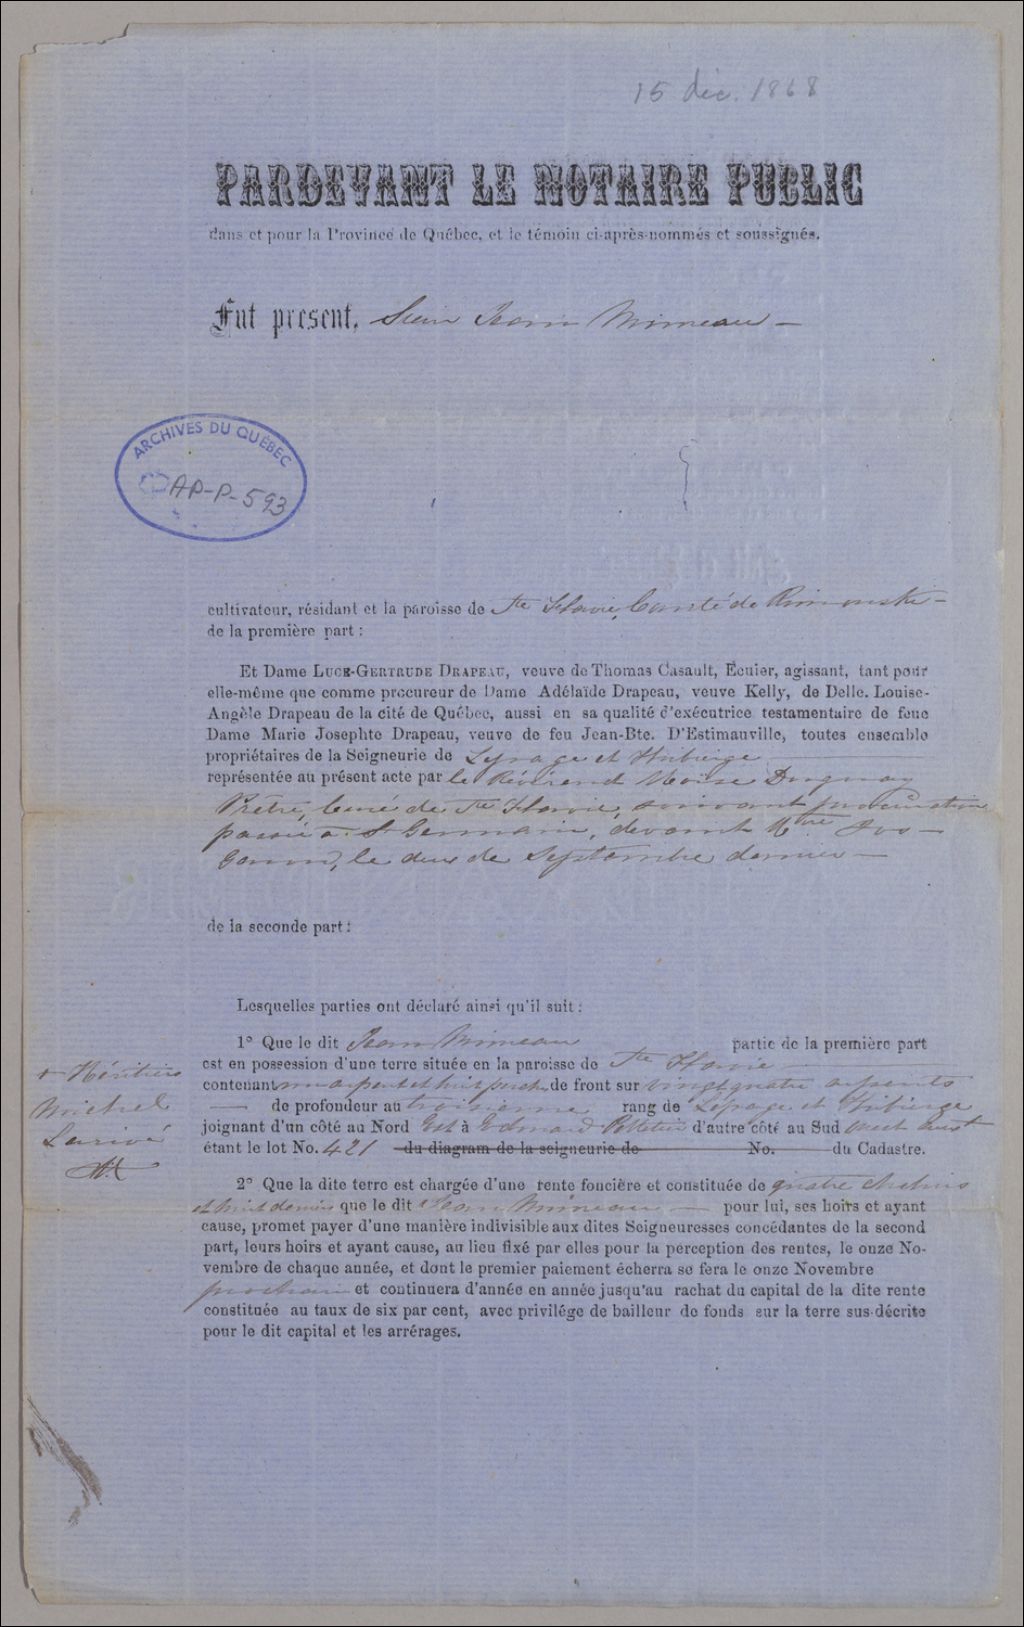 15 dec. 1868
PARDEVANT LE NOTAIRE PUBLIC
dans et pour la Province de Québec, et le témoin ci-après nommés et soussignés.
Fut present, Sieur Jean Mimeau —
ARCHIVES DU QUÉBEC
AP-P-593
cultivateur, résidant et la paroisse de Ste Flavie, Comté de Rimouski —
de la première part :
Et Dame LUCE-GERTRUDE DRAPEAU, veuve de Thomas Casault, Ecuier, agissant, tant pour
elle-même que comme procureur de Dame Adélaïde Drapeau, veuve Kelly, de Delle. Louise-
Angèle Drapeau de la cité de Québec, aussi en sa qualité d'exécutrice testamentaire de feue
Dame Marie Josephte Drapeau, veuve de feu Jean-Bte. D'Estimauville, toutes ensemble
propriétaires de la Seigneurie de Lepage et Thibierge
représentée au présent acte par le Révérend Moïse Duguay
Prêtre, Curé de Ste Flavie, suivant procuration
passée à St Germain, devant Mtre Jos —
Garon, le deux de Septembre dernier —
de la seconde part :
Lesquelles parties ont déclaré ainsi qu'il suit :
1° Que le dit Jean Mimeau partie de la première part
est en possession d'une terre située en la paroisse de Ste Flavie
contenant un arpent et huit perches de front sur vingt quatre arpents
— de profondeur au troisième rang de Lepage et Thibierge
joignant d'un côté au Nord Est à Edouard Pelletier d'autre côté au Sud Ouest aux +
+ Héritiers
Michel
Larivé
étant le lot No. 421 du diagram de la seigneurie de No. du Cadastre.
2° Que la dite terre est chargée d'une rente foncière et constituée de quatre chelins
et huit deniers que le dit Jean Mimeau — pour lui, ses hoirs et ayant
cause, promet payer d'une manière indivisible aux dites Seigneuresses concédantes de la second
part, leurs hoirs et ayant cause, au lieu fixé par elles pour la perception des rentes, le onze No-
vembre de chaque année, et dont le premier paiement écherra se fera le onze Novembre
prochain et continuera d'année en année jusqu'au rachat du capital de la dite rente
constituée au taux de six par cent, avec privilége de bailleur de fonds sur la terre sus-décrite
pour le dit capital et les arrérages.